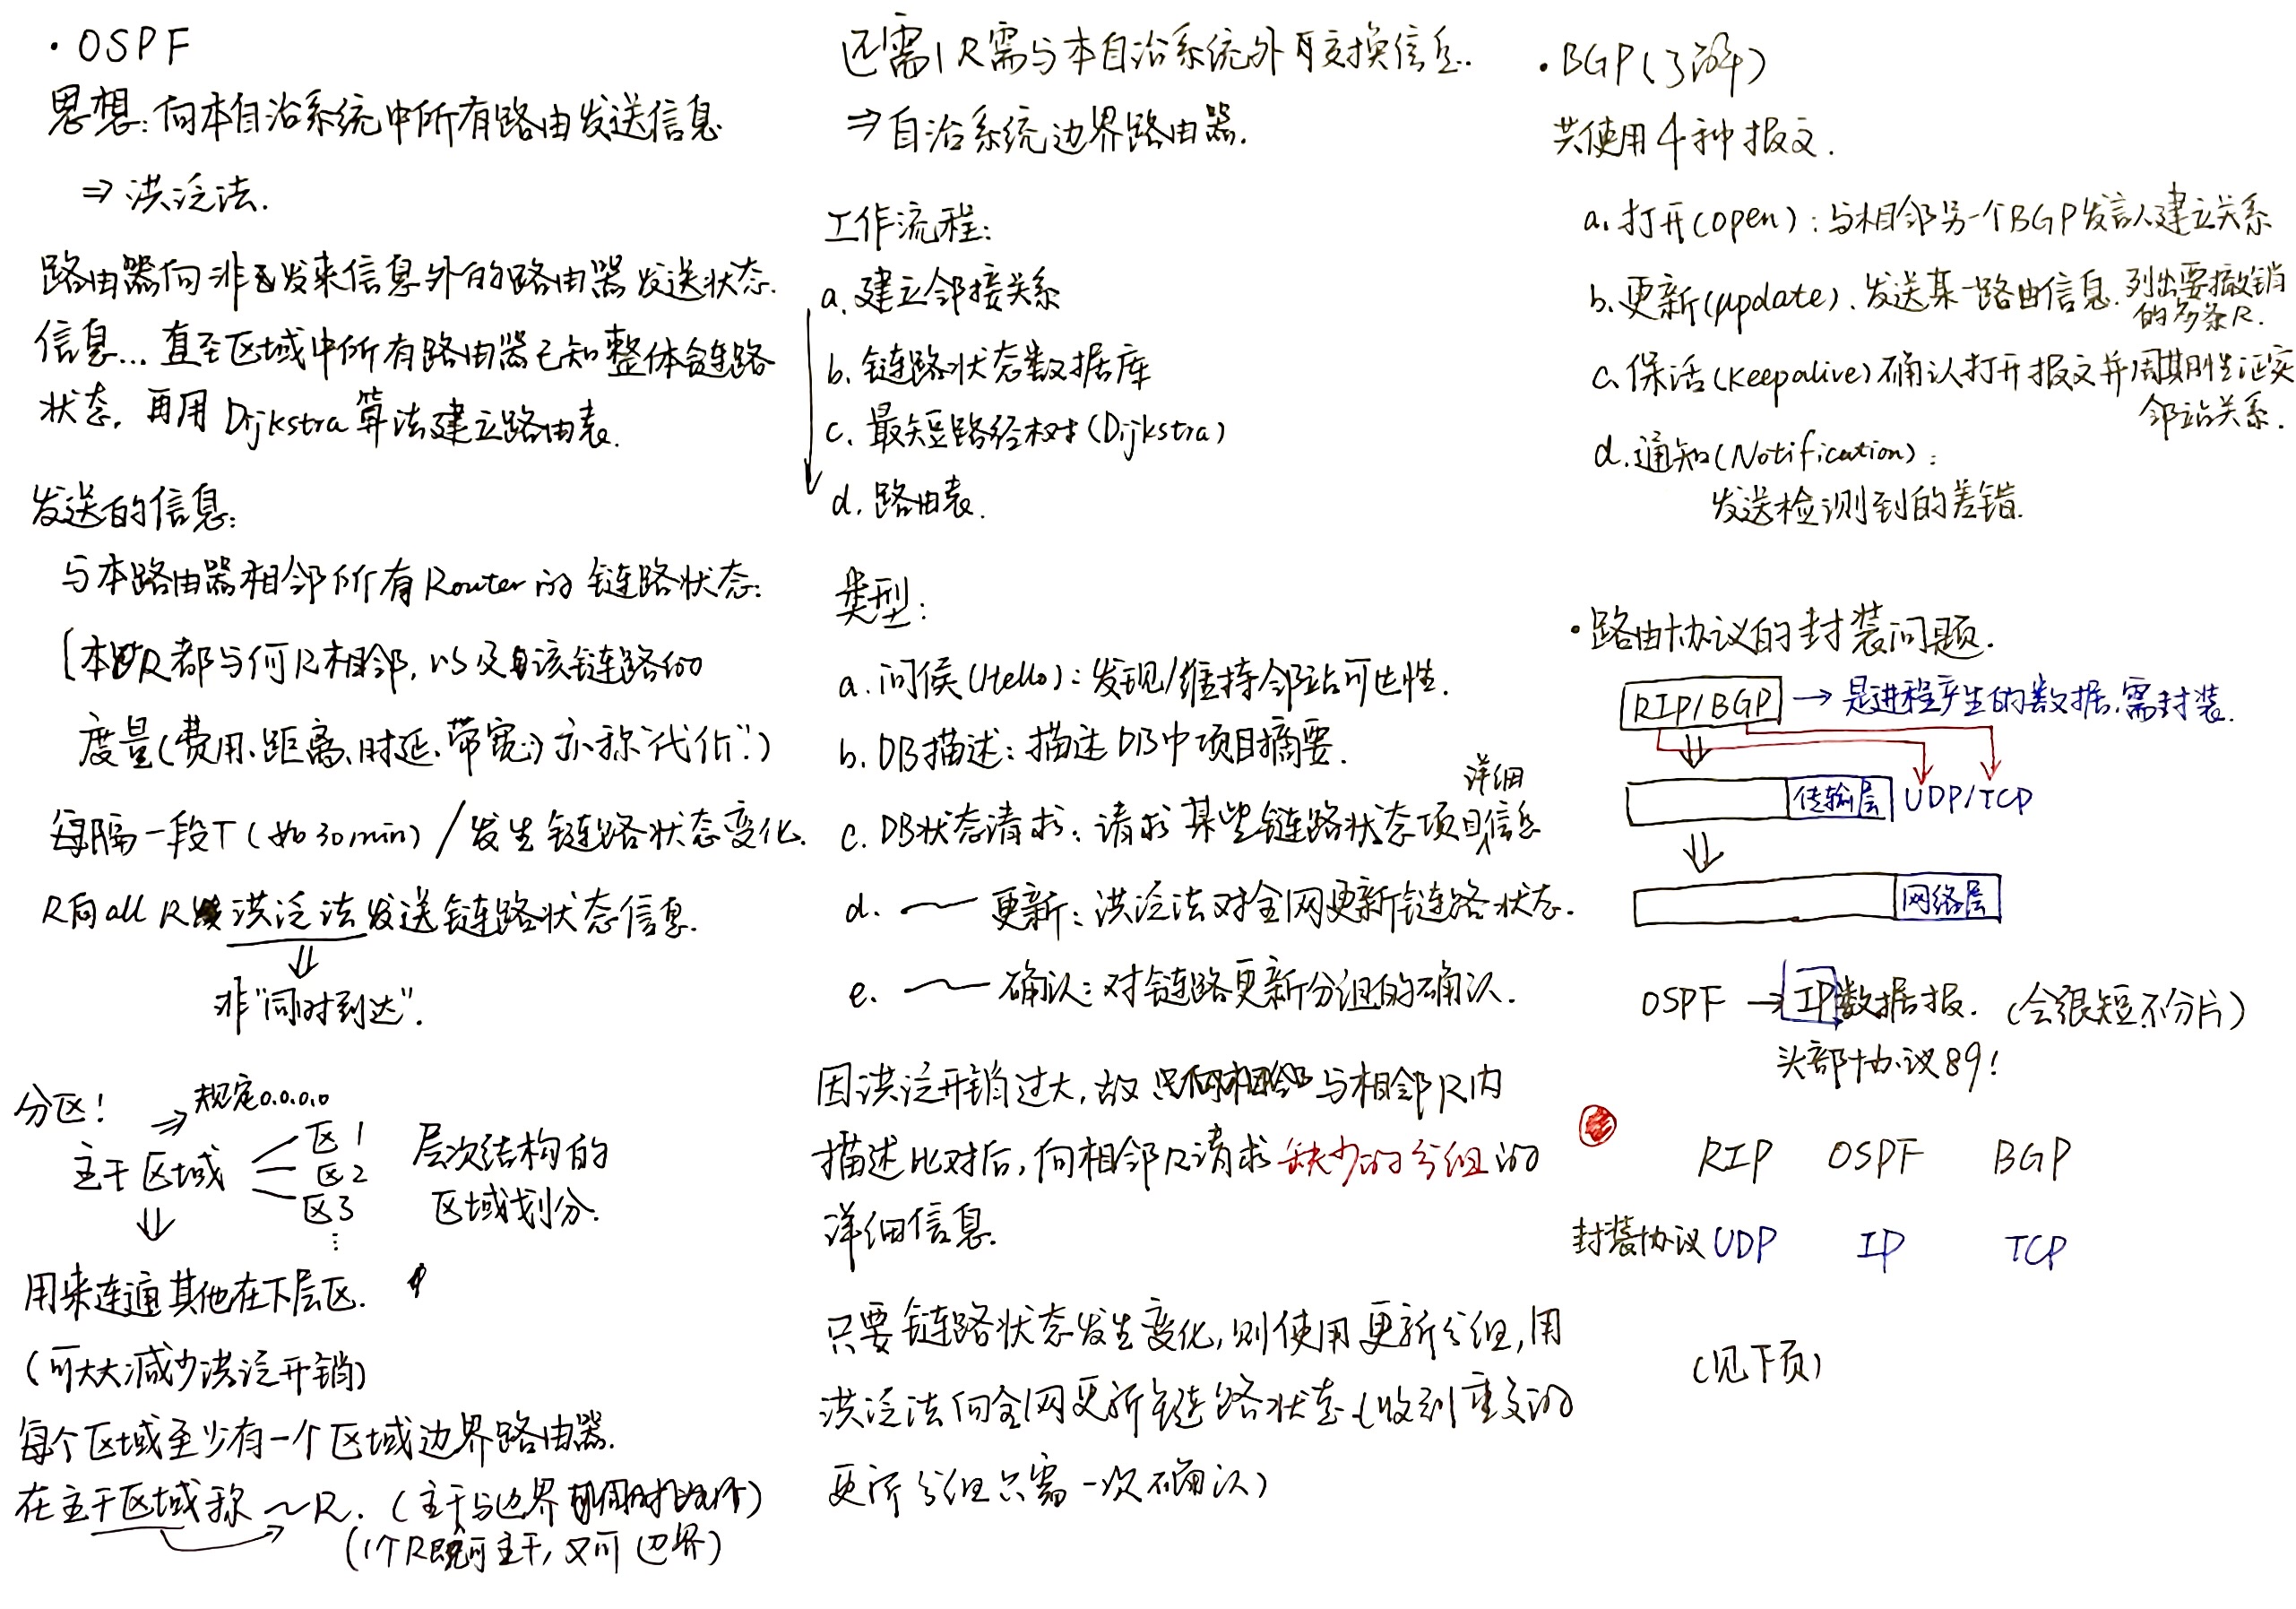 · OSPF
思想: 向本自治系统中所有路由发送信息
⇒ 洪泛法.
路由器向非发来信息外的路由器发送状态
信息… 直至区域中所有路由器已知整体链路
状态, 再用 Dijkstra 算法建立路由表.
发送的信息:
与本路由器相邻所有Router的链路状态:
[本R都与何R相邻, 以及该链路的
度量(费用、距离、时延、带宽) 亦称"代价".)
每隔一段T (如30min) / 发生链路状态变化.
R向all R 洪泛法发送链路状态信息.
⇓
非"同时到达".
分区!
⇒ 规定0.0.0.0
主干区域
区1
区2
区3
⋮
层次结构的
区域划分.
⇓
用来连通其他在下层区.
(可大大减少洪泛开销)
每个区域至少有一个区域边界路由器.
在主干区域称 ~R. (主干与边界
(1个R既可主干, 又可边界)
还需1R需与本自治系统外再交换信息.
⇒ 自治系统边界路由器.
工作流程:
a. 建立邻接关系
b. 链路状态数据库
c. 最短路径树 (Dijkstra)
d. 路由表.
类型:
a. 问候 (Hello): 发现/维持邻站可达性.
b. DB描述: 描述DB中项目摘要.
c. DB状态请求: 请求某些链路状态项目详细信息
d. —— 更新: 洪泛法对全网更新链路状态.
e. —— 确认: 对链路更新分组的确认.
因洪泛开销过大, 故 与相邻R内
描述比对后, 向相邻R请求缺少的分组的
详细信息.
只要链路状态发生变化, 则使用更新分组, 用
洪泛法向全网更新链路状态 (收到重复的
更新分组只需一次确认)
· BGP (了解)
共使用4种报文.
a. 打开(open): 与相邻另一个BGP发言人建立关系
b. 更新(update). 发送某一路由信息. 列出要撤销
的多条R.
c. 保活(Keepalive) 确认打开报文并周期性证实
邻站关系.
d. 通知(Notification):
发送检测到的差错.
· 路由协议的封装问题.
RIP/BGP → 是进程产生的数据, 需封装.
⇓
传输层 UDP/TCP
⇓
网络层
OSPF → IP数据报. (会很短不分片)
头部协议89!
RIP OSPF BGP
封装协议 UDP IP TCP
(见下页)